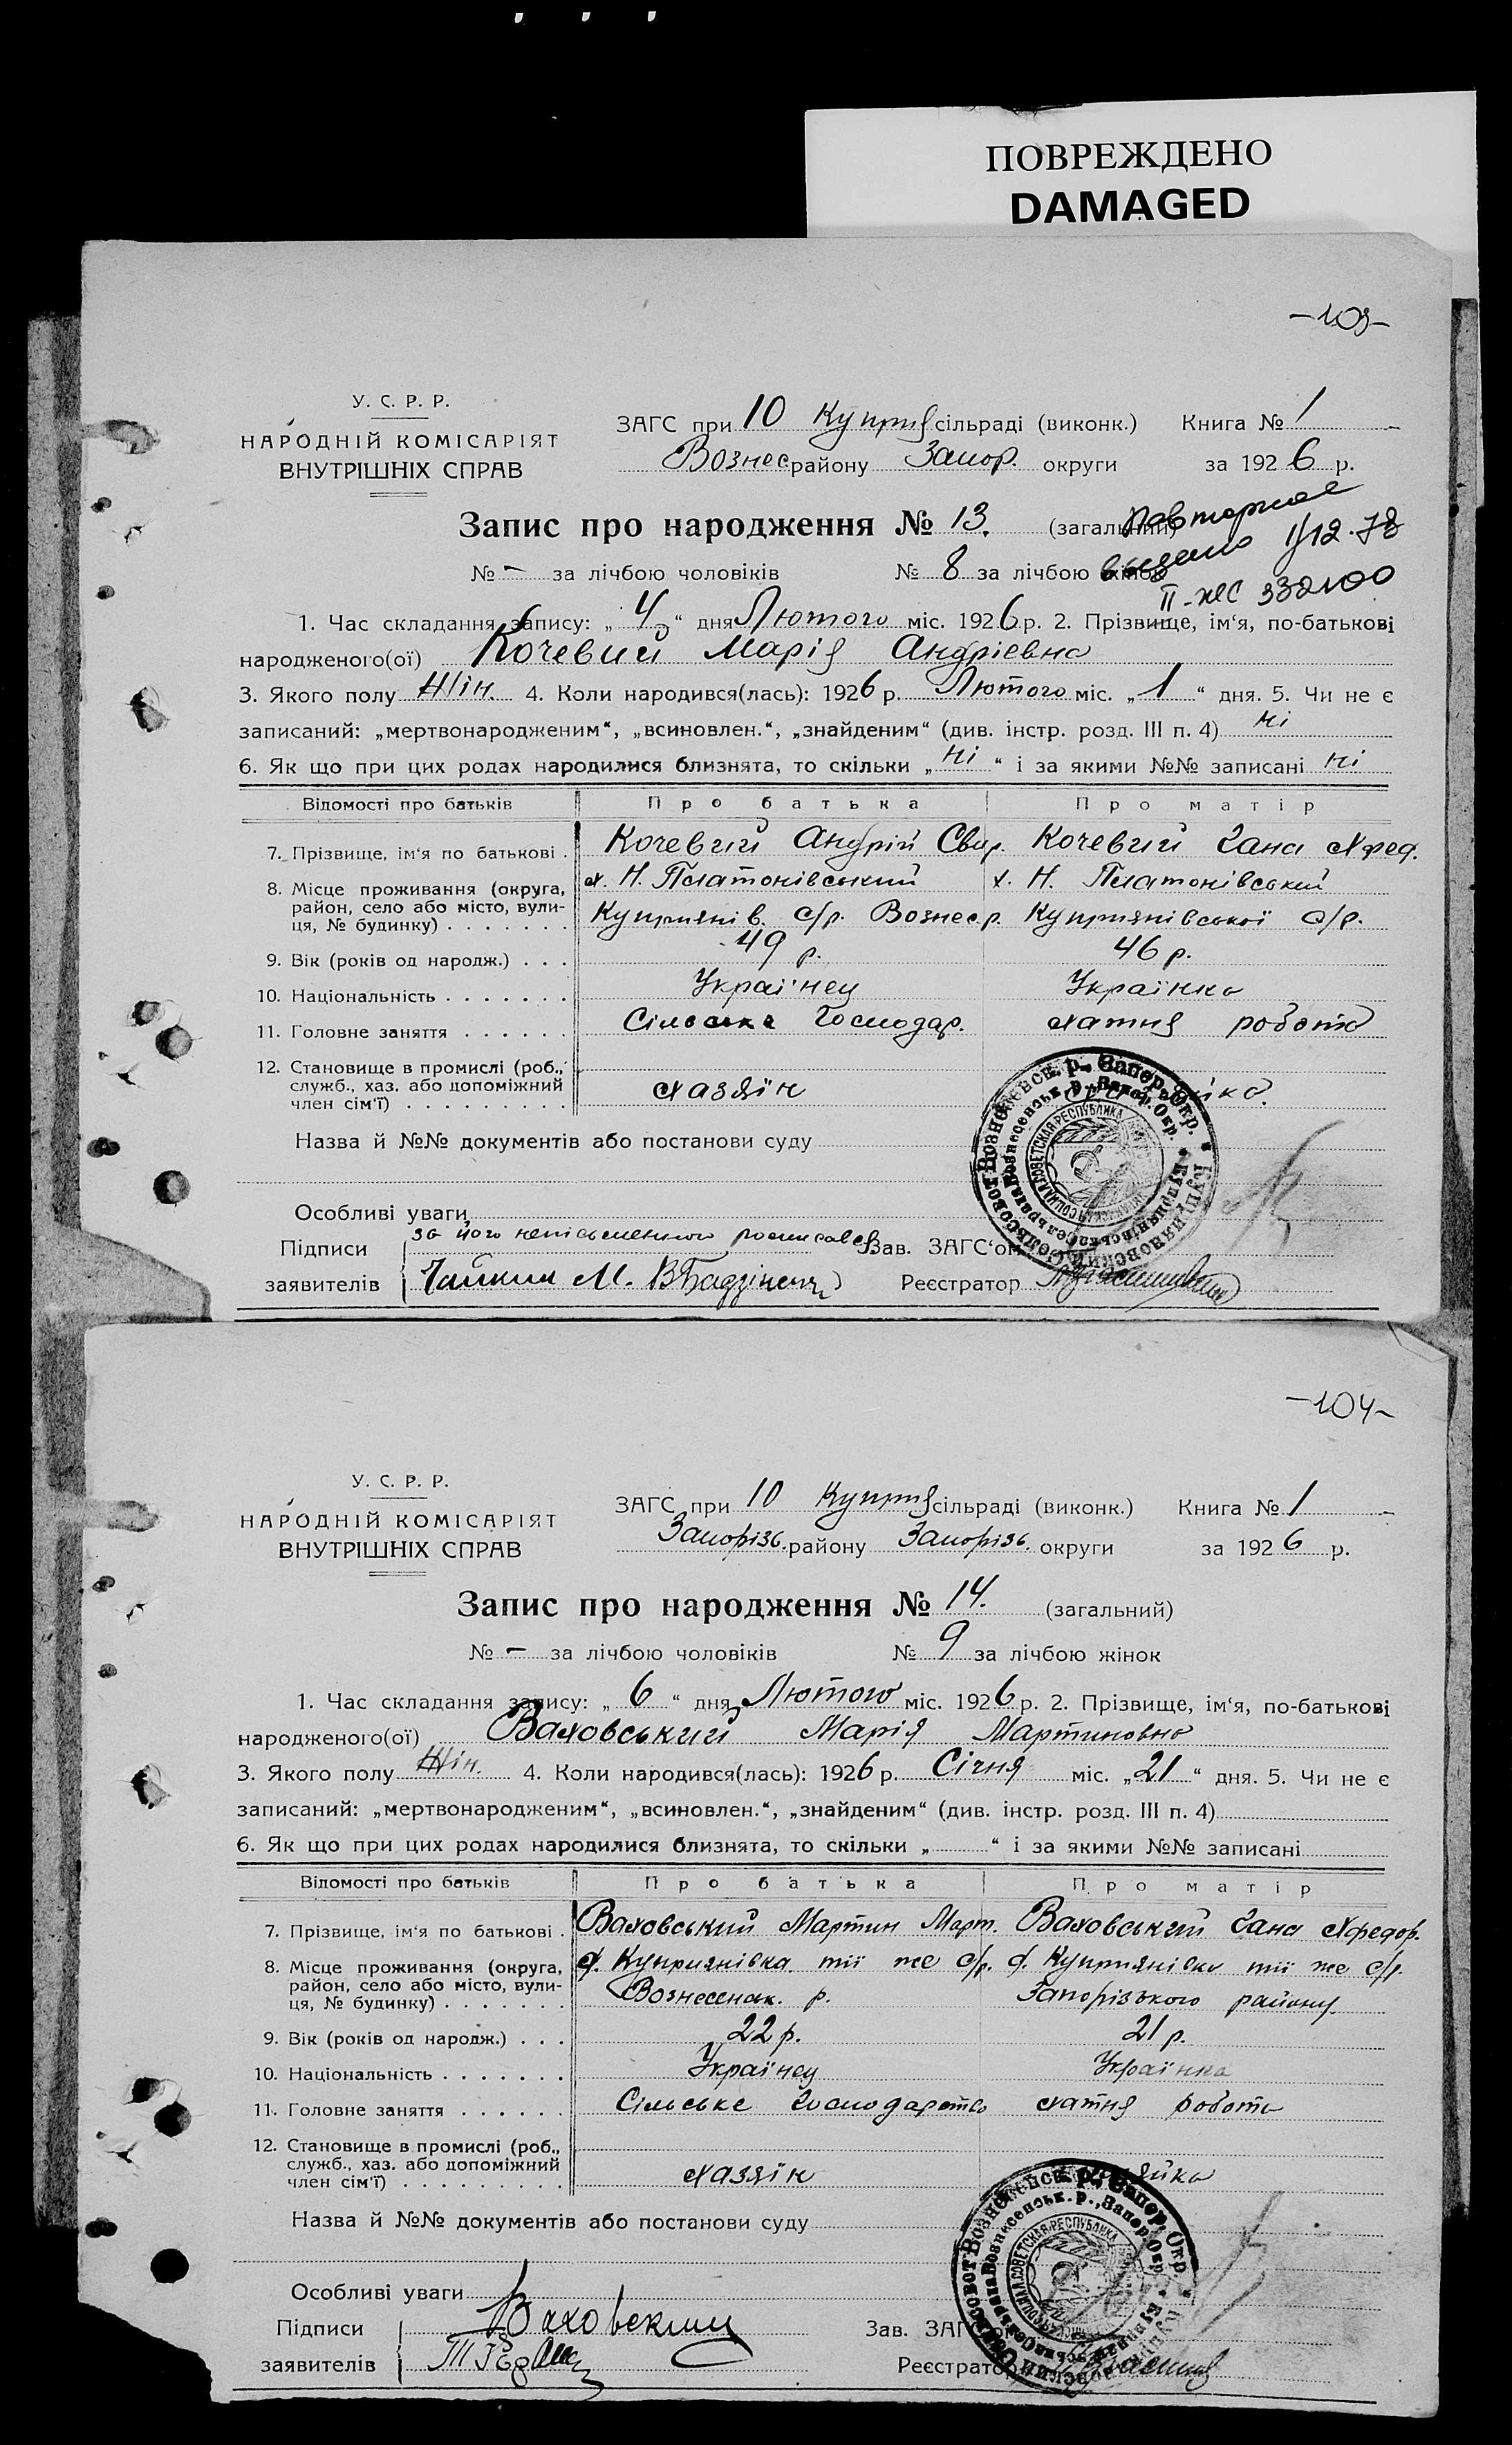 ПОВРЕЖДЕНО
DAMAGED
-103-
У. С. Р. Р.
НАРОДНІЙ КОМІСАРІЯТ
ВНУТРІШНІХ СПРАВ
ЗАГС при 10 Куприя сільраді (виконк.) Книга № 1
Вознес району Запор. округи за 1926 р.
Запис про народження № 13. (загальний)
повторное
выдано 1/12.78
№ - за лічбою чоловіків № 8 за лічбою жінок
II-ЖС 332100
1. Час складання запису: „4" дня Лютого міс. 1926 р. 2. Прізвище, ім'я, по-батькові
народженого(ої) Кочевий Марія Андріевна
3. Якого полу Жін. 4. Коли народився(лась): 1926 р. Лютого міс. „1" дня. 5. Чи не є
записаний: „мертвонародженим", „всиновлен.", „знайденим" (див. інстр. розд. III п. 4) ні
6. Як що при цих родах народилися близнята, то скільки „ні" і за якими №№ записані ні
Відомості про батьків Про батька Про матір
7. Прізвище, ім'я по батькові . Кочевий Андрій Свир. Кочевий Гана Хфед.
8. Місце проживання (округа, район, село або місто, вулиця, № будинку) х. Н. Платонівський х. Н. Платонівський
Куприянів. с/р. Вознес р. Куприянівської с/р.
9. Вік (років од народж.) . . . 49 р. 46 р.
10. Національність Украінец Українка
11. Головне заняття Сільське Господар. хатня робота
12. Становище в промислі (роб., служб., хаз. або допоміжний член сім'ї) хазяїн
Назва й №№ документів або постанови суду
Особливі уваги
Підписи за його неписьменного росписався Зав. ЗАГС'ом
заявителів Чайкин М. Реєстратор
-104-
У. С. Р. Р.
НАРОДНІЙ КОМІСАРІЯТ
ВНУТРІШНІХ СПРАВ
ЗАГС при 10 Куприя сільраді (виконк.) Книга № 1
Запорізь. району Запорізь. округи за 1926 р.
Запис про народження № 14. (загальний)
№ - за лічбою чоловіків № 9 за лічбою жінок
1. Час складання запису: „6" дня Лютого міс. 1926 р. 2. Прізвище, ім'я, по-батькові
народженого(ої) Ваховський Марія Мартиновна
3. Якого полу Жін. 4. Коли народився(лась): 1926 р. Січня міс. „21" дня. 5. Чи не є
записаний: „мертвонародженим", „всиновлен.", „знайденим" (див. інстр. розд. III п. 4)
6. Як що при цих родах народилися близнята, то скільки „ " і за якими №№ записані
Відомості про батьків Про батька Про матір
7. Прізвище, ім'я по батькові . Ваховський Мартин Март. Ваховський Гана Хфедор.
8. Місце проживання (округа, район, село або місто, вулиця, № будинку) с. Куприянівка тії же с/р. с. Куприянівка тії же с/р.
Вознесенск. р. Запорізького району
9. Вік (років од народж.) . . . 22 р. 21 р.
10. Національність Українец Українка
11. Головне заняття Сільське господарство хатня робота
12. Становище в промислі (роб., служб., хаз. або допоміжний член сім'ї) хазяїн
Назва й №№ документів або постанови суду
Особливі уваги
Підписи Ваховский Зав. ЗАГС
заявителів Реєстратор